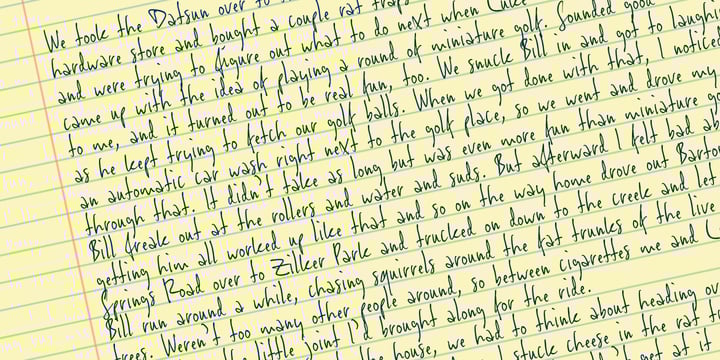 We took the Datsun over to
hardware store and bought a couple rat traps
and were trying to figure out what to do next when Luke
came up with the idea of playing a round of miniature golf. Sounded good
to me, and it turned out to be real fun, too. We snuck Bill in and got to laughi
as he kept trying to fetch our golf balls. When we got done with that, I notice
an automatic car wash right next to the golf place, so we went and drove my
through that. It didn't take as long but was even more fun than miniature go
Bill freak out at the rollers and water and suds. But afterward I felt bad ab
getting him all worked up like that and so on the way home drove out Barto
Springs Road over to Zilker Park and trucked on down to the creek and let
Bill run around a while, chasing squirrels around the fat trunks of the live
trees. Weren't too many other people around, so between cigarettes me and
little joint I'd brought along for the ride.
the house, we had to think about heading ov
stuck cheese in the rat t
at it